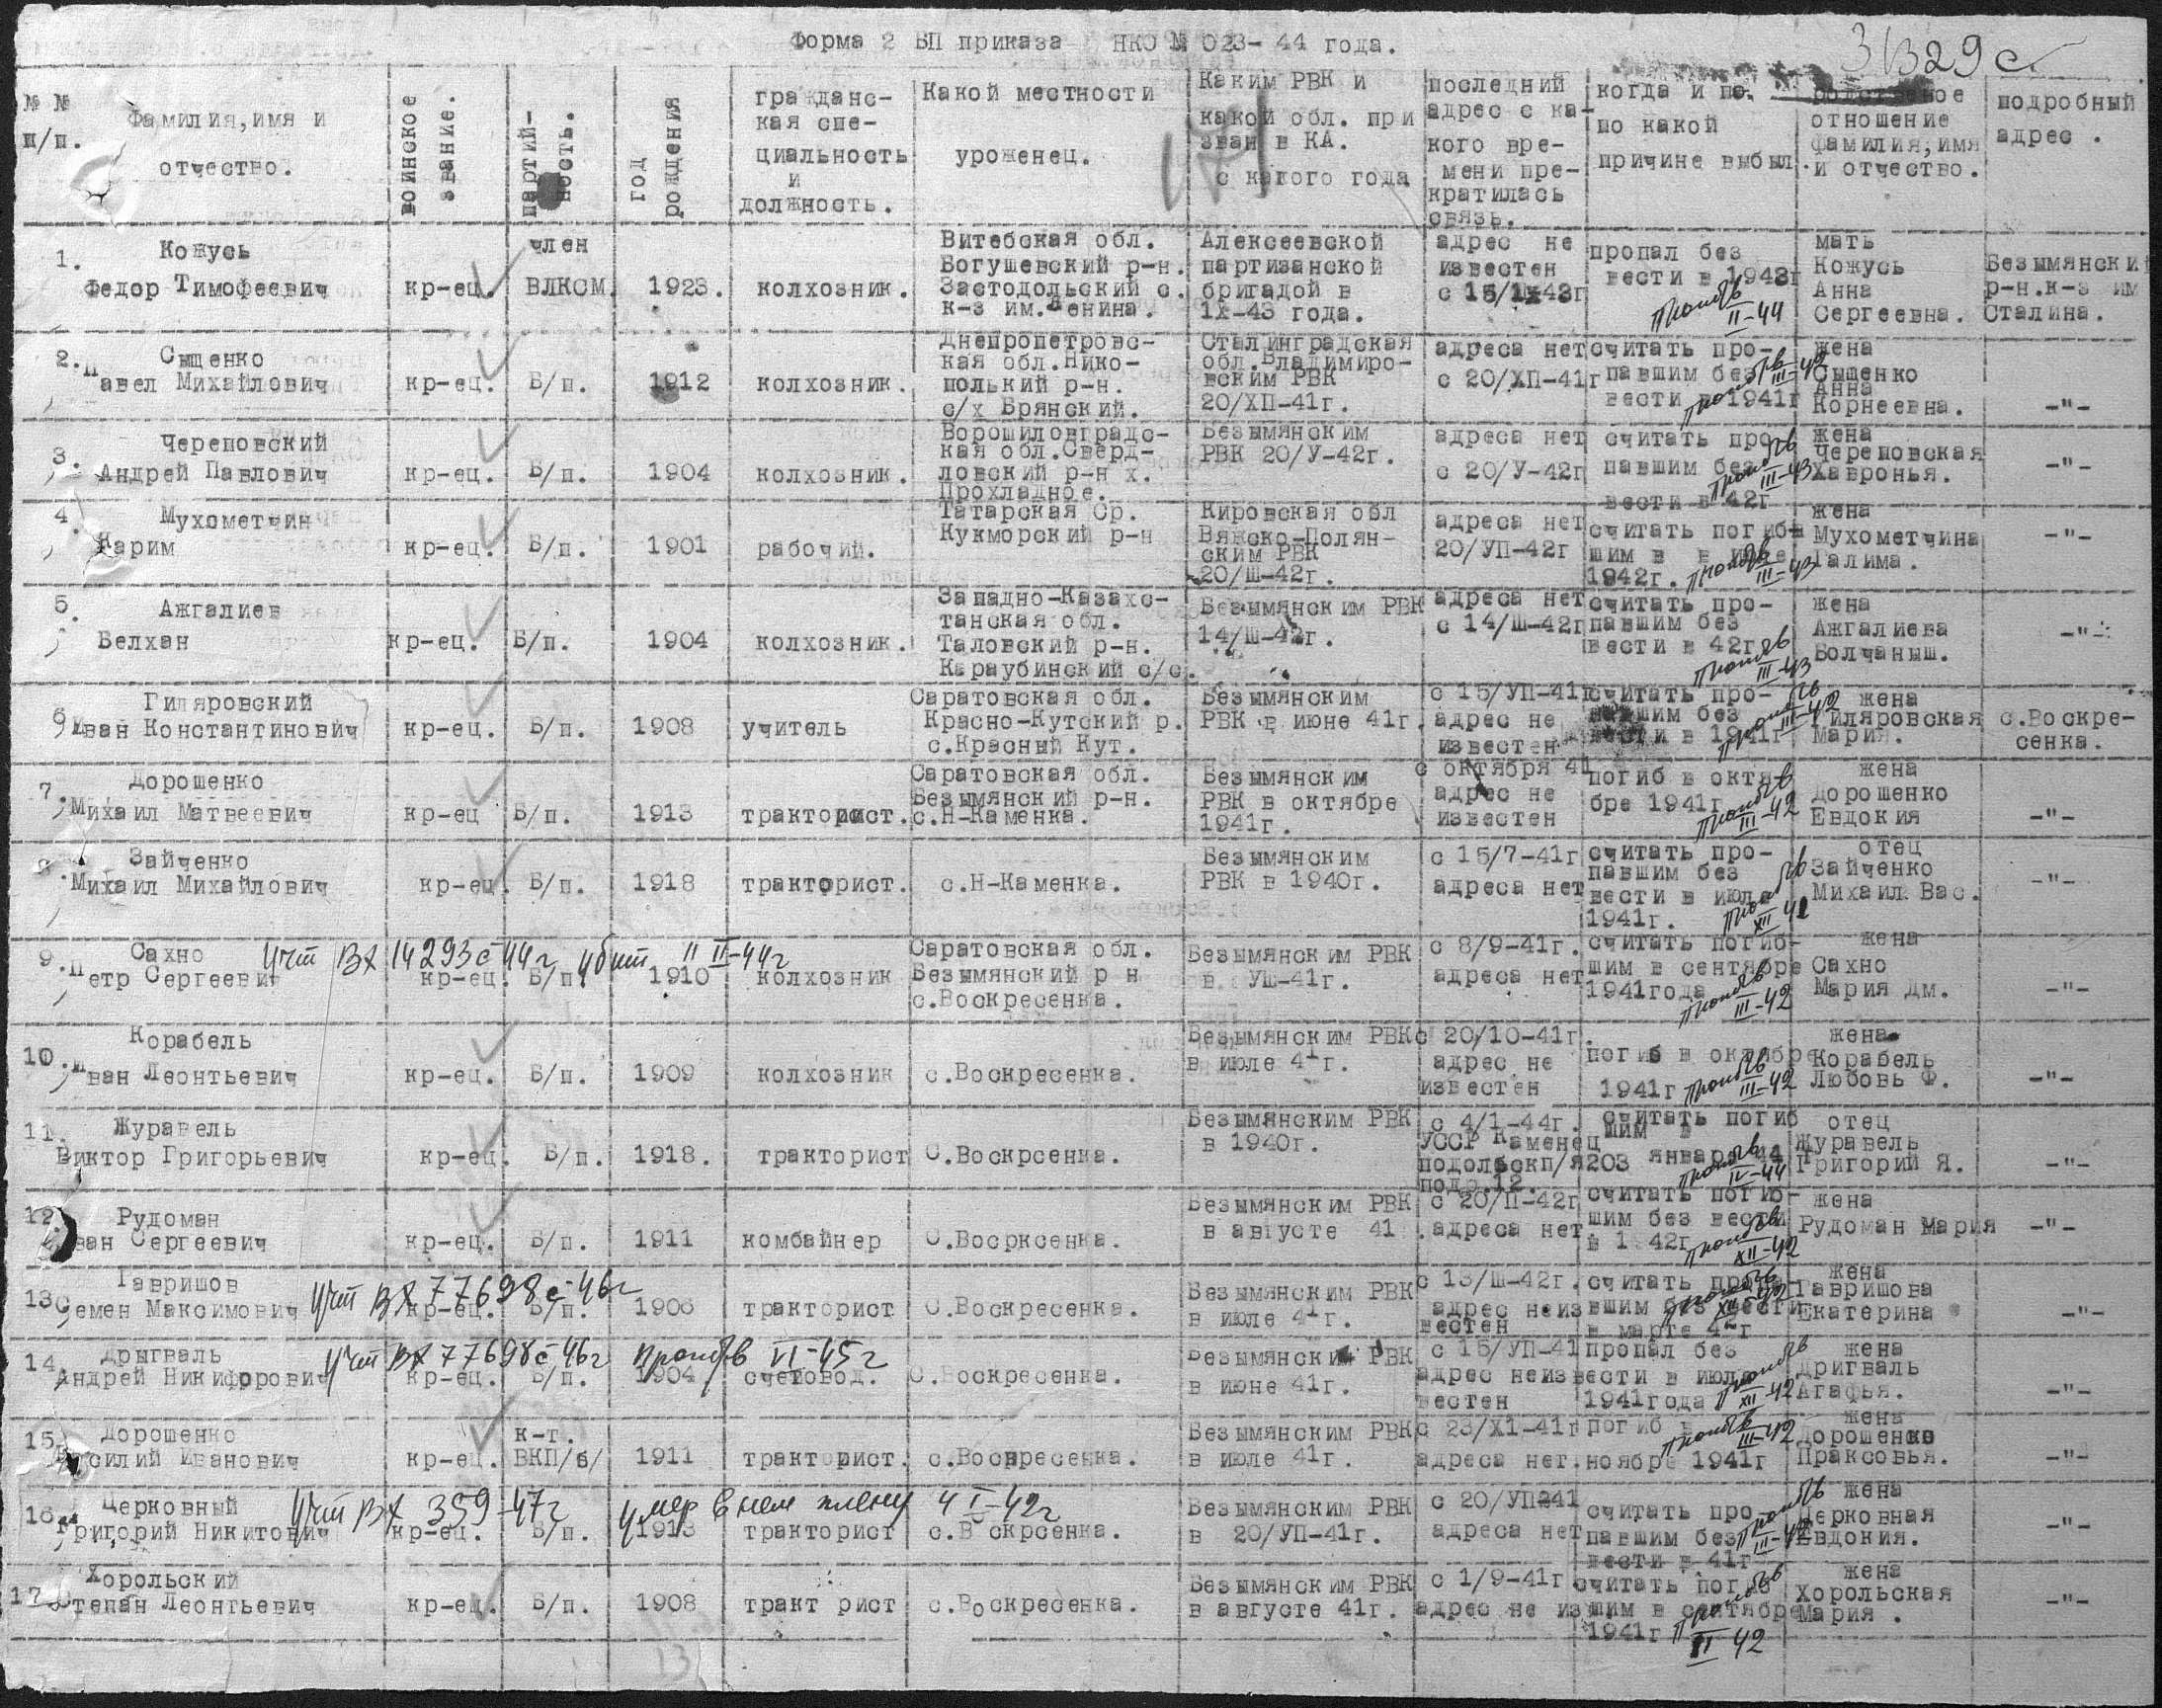 Форма 2 БП приказа НКО № 023-44 года.
31329с
№ №
п/п.
Фамилия, имя и
отчество.
воинское
звание.
партий-
ность.
год
рождения
гражданс-
кая спе-
циальность
и
должность.
Какой местности
уроженец.
Каким РВК и
какой обл. при
зван в КА.
с какого года
последний
адрес с ка-
кого вре-
мени пре-
кратилась
связь.
когда и по.
по какой
причине выбыл.
родственое
отношение
фамилия, имя
и отчество.
подробный
адрес.
171
1.
Кожусь
Федор Тимофеевич
кр-ец.
член
ВЛКСМ.
1923.
колхозник.
Витебская обл.
Богушевский р-н.
Застодольский с.
к-з им.Ленина.
Алексеевской
партизанской
бригадой в
1Х-43 года.
адрес не
известен
с 15/1Х-43г
пропал без
вести в 1943г
проп б/в
II-44
мать
Кожусь
Анна
Сергеевна.
Безымянский
р-н.к-з им
Сталина.
2.
Сыщенко
Павел Михайлович
кр-ец.
Б/п.
1912
колхозник.
Днепропетровс-
кая обл.Нико-
польский р-н.
с/х Брянский.
Сталинградская
обл.Владимиро-
вским РВК
20/ХП-41г.
адреса нет
с 20/ХП-41г
считать про-
павшим без
вести в 1941г
проп б/в
III-42
жена
Сыщенко
Анна
Корнеевна.
-"-
3.
Череповский
Андрей Павлович
кр-ец.
Б/п.
1904
колхозник.
Ворошиловградс-
кая обл.Сверд-
ловский р-н х.
Прохладное.
Безымянским
РВК 20/У-42г.
адреса нет
с 20/У-42г
считать про
павшим без
вести в 42г
проп б/в
III-43
жена
Череповская
Хавронья.
-"-
4.
Мухометчин
Карим
кр-ец.
Б/п.
1901
рабочий.
Татарская Ср.
Кукморский р-н
Кировская обл
Вяжско-Полян-
ским РВК
20/Ш-42г.
адреса нет
20/УП-42г
считать погиб-
шим в в июле
1942г.
проп б/в
III-43
жена
Мухометчина
Галима.
-"-
5.
Ажгалиев
Белхан
кр-ец.
Б/п.
1904
колхозник.
Западно-Казахс-
танская обл.
Таловский р-н.
Караубинский с/с.
Безымянским РВК
14/Ш-42г.
адреса нет
с 14/Ш-42г
считать про-
павшим без
вести в 42г
проп б/в
III-43
жена
Ажгалиева
Болчаныш.
-"-
6.
Гиляровский
Иван Константинович
кр-ец.
Б/п.
1908
учитель
Саратовская обл.
Красно-Кутский р.
с.Красный Кут.
Безымянским
РВК в июне 41г.
с 15/УП-41г
адрес не
известен
считать про-
павшим без
вести в 1941г
проп б/в
III-42
жена
Гиляровская
Мария.
с.Воскре-
сенка.
7.
Дорошенко
Михаил Матвеевич
кр-ец
Б/п.
1913
тракторист.
Саратовская обл.
Безымянский р-н.
с.Н-Каменка.
Безымянским
РВК в октябре
1941г.
с октября 41
адрес не
известен
погиб в октя-
бре 1941г
проп б/в
III-42
жена
Дорошенко
Евдокия
-"-
8.
Зайченко
Михаил Михайлович
кр-ец.
Б/п.
1918
тракторист.
с.Н-Каменка.
Безымянским
РВК в 1940г.
с 15/7-41г
адреса нет
считать про-
павшим без
вести в июле
1941г.
проп б/в
XII-42
отец
Зайченко
Михаил Вас.
-"-
9.
Сахно
Петр Сергеевич
учт Вх 14293с-44г убит 11 II-44г
кр-ец.
Б/п.
1910
колхозник
Саратовская обл.
Безымянский р н
с.Воскресенка.
Безымянским РВК
в УШ-41г.
с 8/9-41г.
адреса нет
считать погиб-
шим в сентябре
1941года
проп б/в
III-42
жена
Сахно
Мария Дм.
-"-
10.
Корабель
Иван Леонтьевич
кр-ец.
Б/п.
1909
колхозник
с.Воскресенка.
Безымянским РВК
в июле 41г.
с 20/10-41г.
адрес не
известен
погиб в октябре
1941г
проп б/в
III-42
жена
Корабель
Любовь Ф.
-"-
11.
Журавель
Виктор Григорьевич
кр-ец.
Б/п.
1918.
тракторист
С.Воскрсенка.
Безымянским РВК
в 1940г.
с 4/1-44г.
УССР Каменец
подолбскп/я203
подр.12.
считать погиб
шим в
январе 44
проп б/в
IV-44
отец
Журавель
Григорий Я.
-"-
12.
Рудоман
Иван Сергеевич
кр-ец.
Б/п.
1911
комбайнер
С.Восрксенка.
Безымянским РВК
в августе 41.
с 20/П-42г
адреса нет
считать погиб-
шим без вести
в 1 42г
проп б/в
XII-42
жена
Рудоман Мария
-"-
13
Гавришов
Семен Максимович
учт Вх 77698с-46г
кр-ец.
Б/п.
1906
тракторист
С.Воскресенка.
Безымянским РВК
в июле 41г.
с 13/Ш-42г.
адрес неиз
вестен
считать пропа-
вшим без вести
в марте 42г
проп б/в
XII-42
жена
Гавришова
Екатерина
-"-
14.
Дрыгваль
Андрей Никифорович
учт Вх 77698с-46г проп б/в VI-45г
кр-ец.
Б/п.
1904
счетовод.
С.Воскресенка.
Безымянским РВК
в июне 41г.
с 15/УП-41
адрес неиз
вестен
пропал без
вести в июле
1941года
проп б/в
XII-42
жена
Дригваль
Агафья.
-"-
15.
Дорошенко
Василий Иванович
кр-ец.
к-т.
ВКП/б/
1911
тракторист.
с.Воскресенка.
Безымянским РВК
в июле 41г.
с 23/Х1-41г
адреса нет.
погиб в
ноябре 1941г
проп б/в
III-42
жена
Дорошенко
Праксовья.
-"-
16.
Церковный
Григорий Никитович
учт Вх 359-47г умер в нем плену 4 I-42г
кр-ец.
Б/п.
1913
тракторист
с.В скрсенка.
Безымянским РВК
в 20/УП-41г.
с 20/УП-41
адреса нет
считать про
павшим без
вести в 41г
проп б/в
III-42
жена
Церковная
Евдокия.
-"-
17.
Хорольский
Степан Леонтьевич
кр-ец.
Б/п.
1908
тракт рист
с.Воскресенка.
Безымянским РВК
в августе 41г.
с 1/9-41г
адрес не из
считать погиб
шим в сентябре
1941г
проп б/в
II 42
жена
Хорольская
Мария.
-"-
13